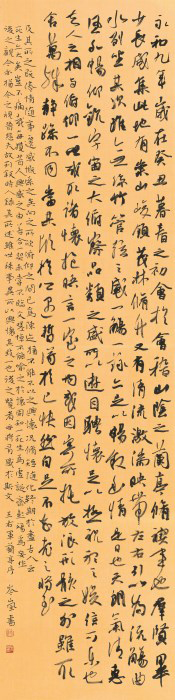 永和九年歲在癸丑暮春之初會於會稽山陰之蘭亭脩禊事也羣賢畢至
少長咸集此地有崇山峻領茂林脩竹又有清流激湍映帶左右引以為流觴曲
水列坐其次雖無絲竹管弦之盛一觴一詠亦足以暢敘幽情是日也天朗氣清惠
風和暢仰觀宇宙之大俯察品類之盛所以遊目騁懷足以極視聽之娛信可樂也
夫人之相與俯仰一世或取諸懷抱悟言一室之內或因寄所託放浪形骸之外雖取
舍萬殊靜躁不同當其欣於所遇暫得於己快然自足不知老之將至
及其所之既倦情隨事遷感慨係之矣向之所欣俯仰之間已為陳迹猶不能不以之興懷況脩短隨化終期於盡古人云
死生亦大矣豈不痛哉每覽昔人興感之由若合一契未嘗不臨文嗟悼不能喻之於懷固知一死生為虛誕齊彭殤為妄作
後之視今亦由今之視昔悲夫故列敘時人錄其所述雖世殊事異所以興懷其致一也後之覽者亦將有感於斯文 王右軍蘭亭序 書